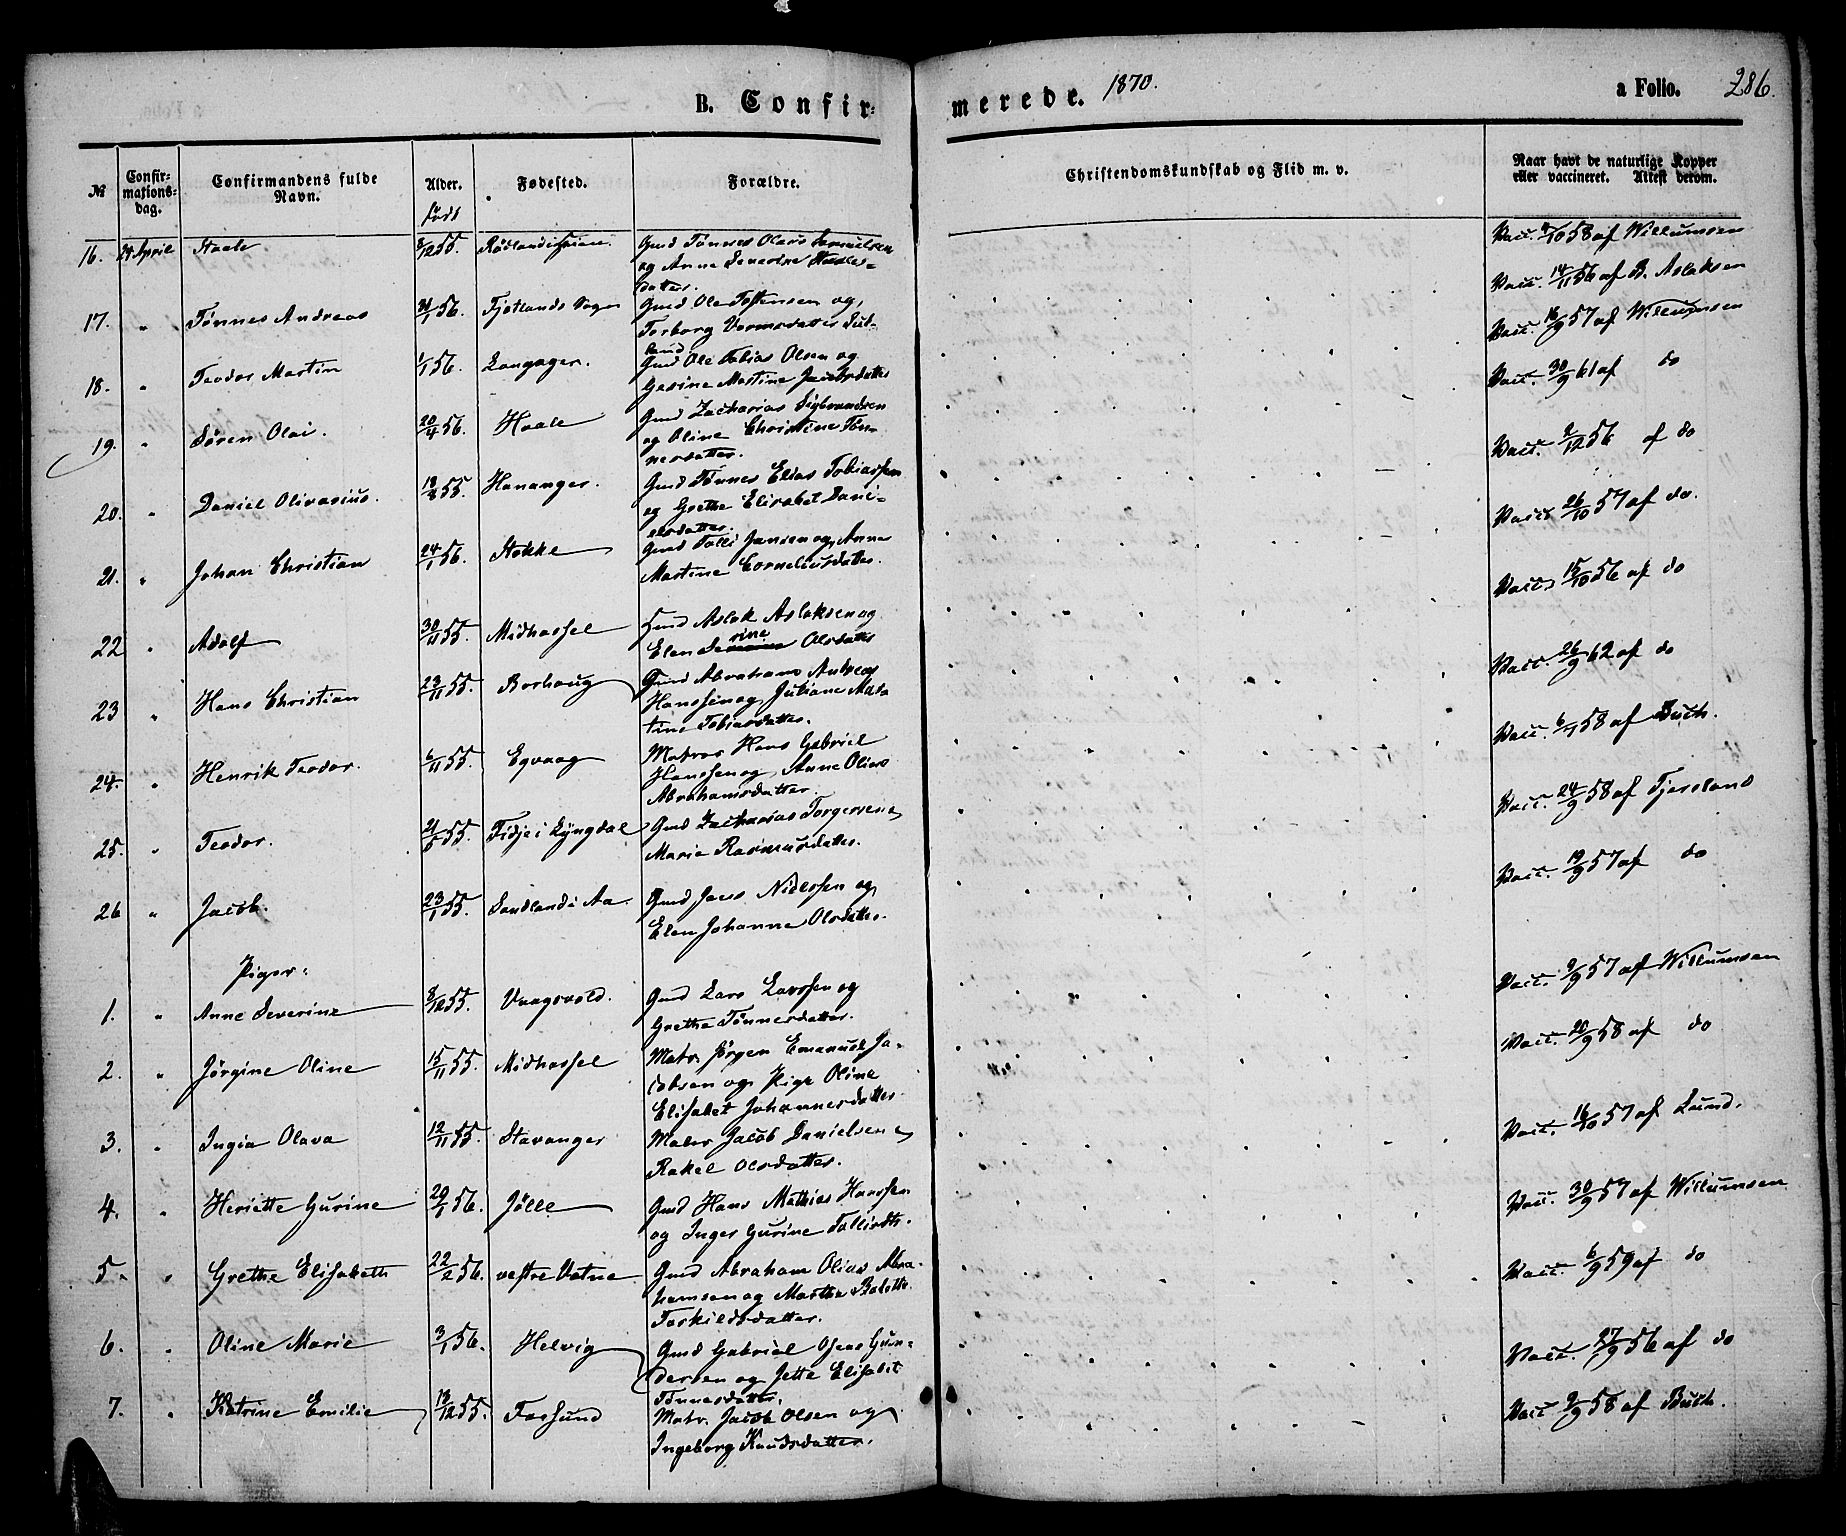 B. Confir-
merede. 1870.
a Folio. 286.
№
Confir-
mations-
dag.
Confirmandens fulde
Navn.
Alder.
født
Fødested.
Forældre.
Christendomskundskab og Flid m. v.
Naar havt de naturlige Kopper
eller vaccineret. Attest derom.
16. 24 April Staale 8/12 55. Gmd Tønnes Olaus Samuelsen
og Anne Severine Staales-
datter.
Vacc. 58 af Willumsen
17. " Tønnes Andreas 31/1 56. Fjotlands Sogn Gmd Ole Tostensen og
Torborg
land
Vacc. 14/11 56 af B. Aslaksen
18. " Teodor Martin 1/1 56. Langager. Gmd Ole Tobias Olsen og
Gesine Martine Jacobsdatter
Vacc. 16/9 57 af Willumsen
19. " Søren Olai. 20/4 56. Haale Gmd Zacharias Sigbrandsen
og Oline Christine Tøn-
nesdatter.
Vacc. 30/9 61 af do
20. " Daniel Olivarius. 18/8 55. Hananger. Gmd Tønnes Elias Tobiassen
og Grethe Elisabet Dani-
elsdatter.
Vacc. 2/12 56 af do
21. " Johan Christian 24/1 56. Stokke Gmd Tolli Jansen og Anne
Martine Corneliusdatter.
Vacc. 26/10 57 af do.
22 " Adolf 30/11 55. Midhassel Gmd Aslak Aslaksen og
rine
Elen Olsdatter
Vacc. 15/10 56 af do
23 " Hans Christian 23/11 55. Borhaug Gmd Abraham Andreas
Hanssen og Juliane Mar-
tine Tobiasdatter.
Vacc. 26/9 62 af do
24. " Henrik Teodor. 6/11 55. Egvaag Matros Hans Gabriel
Hanssen og Anne Olivia
Abrahamsdatter.
Vacc. 58 af Buch.
25. " Teodor. 55. Fidje i Lyngdal Gmd Zacharias Torgersen og
Marie Rasmusdatter.
Vacc. 24/9 58 af Fjersland
26 " Jacob. 23/1 55. Sandland i Aa. Gmd Nielssen og
Elen Johanne Olsdatter.
Vacc. 19/9 57 af do
Piger.
1. " Anne Severine 8/12 55. Vaagsvold. Gmd Lars Larssen og
Grethe Tønnesdatter.
Vacc. 9/9 57 af Willumsen
2. " Jørgine Oline 15/11 55. Midhassel Matr. Jørgen Emanuel Ja-
cobsen og Pige Oline
Elisabet Johannesdatter.
Vacc. 20/9 58 af do
3. " Ingia Olava 12/11 55. Stavanger Maler Jacob Danielsen og
Rakel Olsdatter.
Vacc. 16/10 57 af Lund.
4. " Heriette Gurine 29/1 56. Jølle Gmd Hans Mathias Hanssen
og Inger Gurine Tollisdtr.
Vacc. 30/9 57 af Willumsen
5. " Grethe Elisabeth 22/2 56. vestre Vatne Gmd Abraham Olias Abra-
hamsen og Marthe Bolette
Torkildsdatter.
Vacc. 6/9 59 af do
6. " Oline Marie 3/1 56. Helvig Gmd Gabriel Gun-
dersen og Jette Elisabet
Tønnesdatter.
Vacc. 27/9 56 af do
7. " Katrine Emilie 13/12 55. Farsund Matr. Jacob Olsen og
Ingeborg Knudsdatter.
Vacc 2/9 58 af Buch.